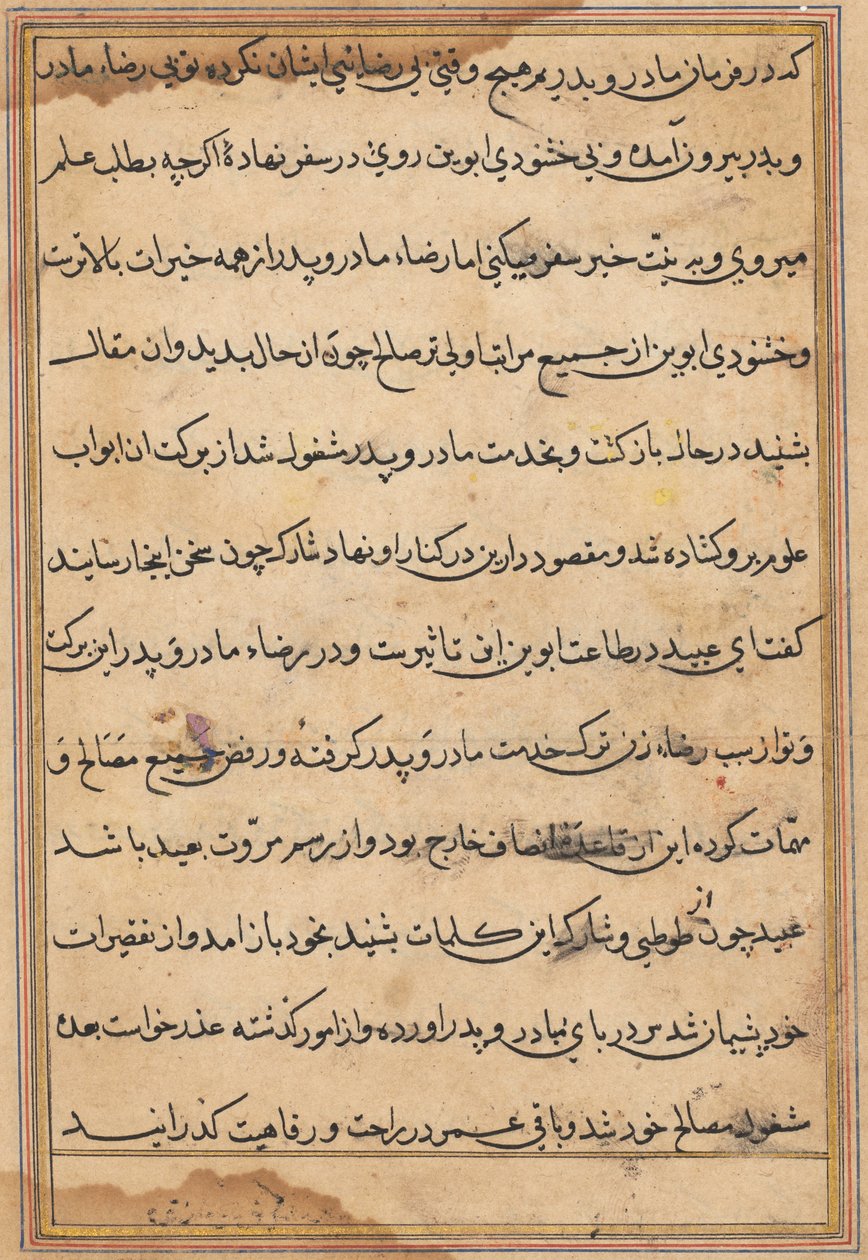 که در فرمان مادر و پدر بر هیچ وقتی بی رضائی ایشان نکرده تو بی رضاء مادر
و پدر بیرون آمده و بی خشنودي ابوین روی در سفر نهادهٔ اکرچه بطلب علم
میروی و به نیّت خیر سفر میکنی اما رضاء مادر و پدر از همه خیرات بالاترست
و خشنودي ابوین از جمیع مراتب اولی تر صالح چون ان حال بدید و ان مقال
بشنید در حال باز کشت و بخدمت مادر و پدر مشغول شد از برکت ان ابواب
علوم برو کشاده شد و مقصود دارین در کنار او نهاد شارک چون سخن اینجا رسانید
کفت ای عبید در طاعت ابوین این تاثیرست و در رضاء مادر وَ پدر این برکت
وَ تو از سبب رضاء زن ترک خدمت مادر وَ پدر کرفتهٔ و رفض جمیع مصَالح وَ
مهمّات کرده این از قاعدهٔ انصاف خارج بود و از رسم مروّت بعید باشد
عبید چون از طوطی و شارک این کلمات بشنید بخود باز امد و از تقصیرات
خود پشیمان شد سر در پای مادر و پدر اورده و از امور کذشته عذر خواست بعده
مشغول مصالح خود شد و باقی عمر در راحت و رفاهیت کذرانید